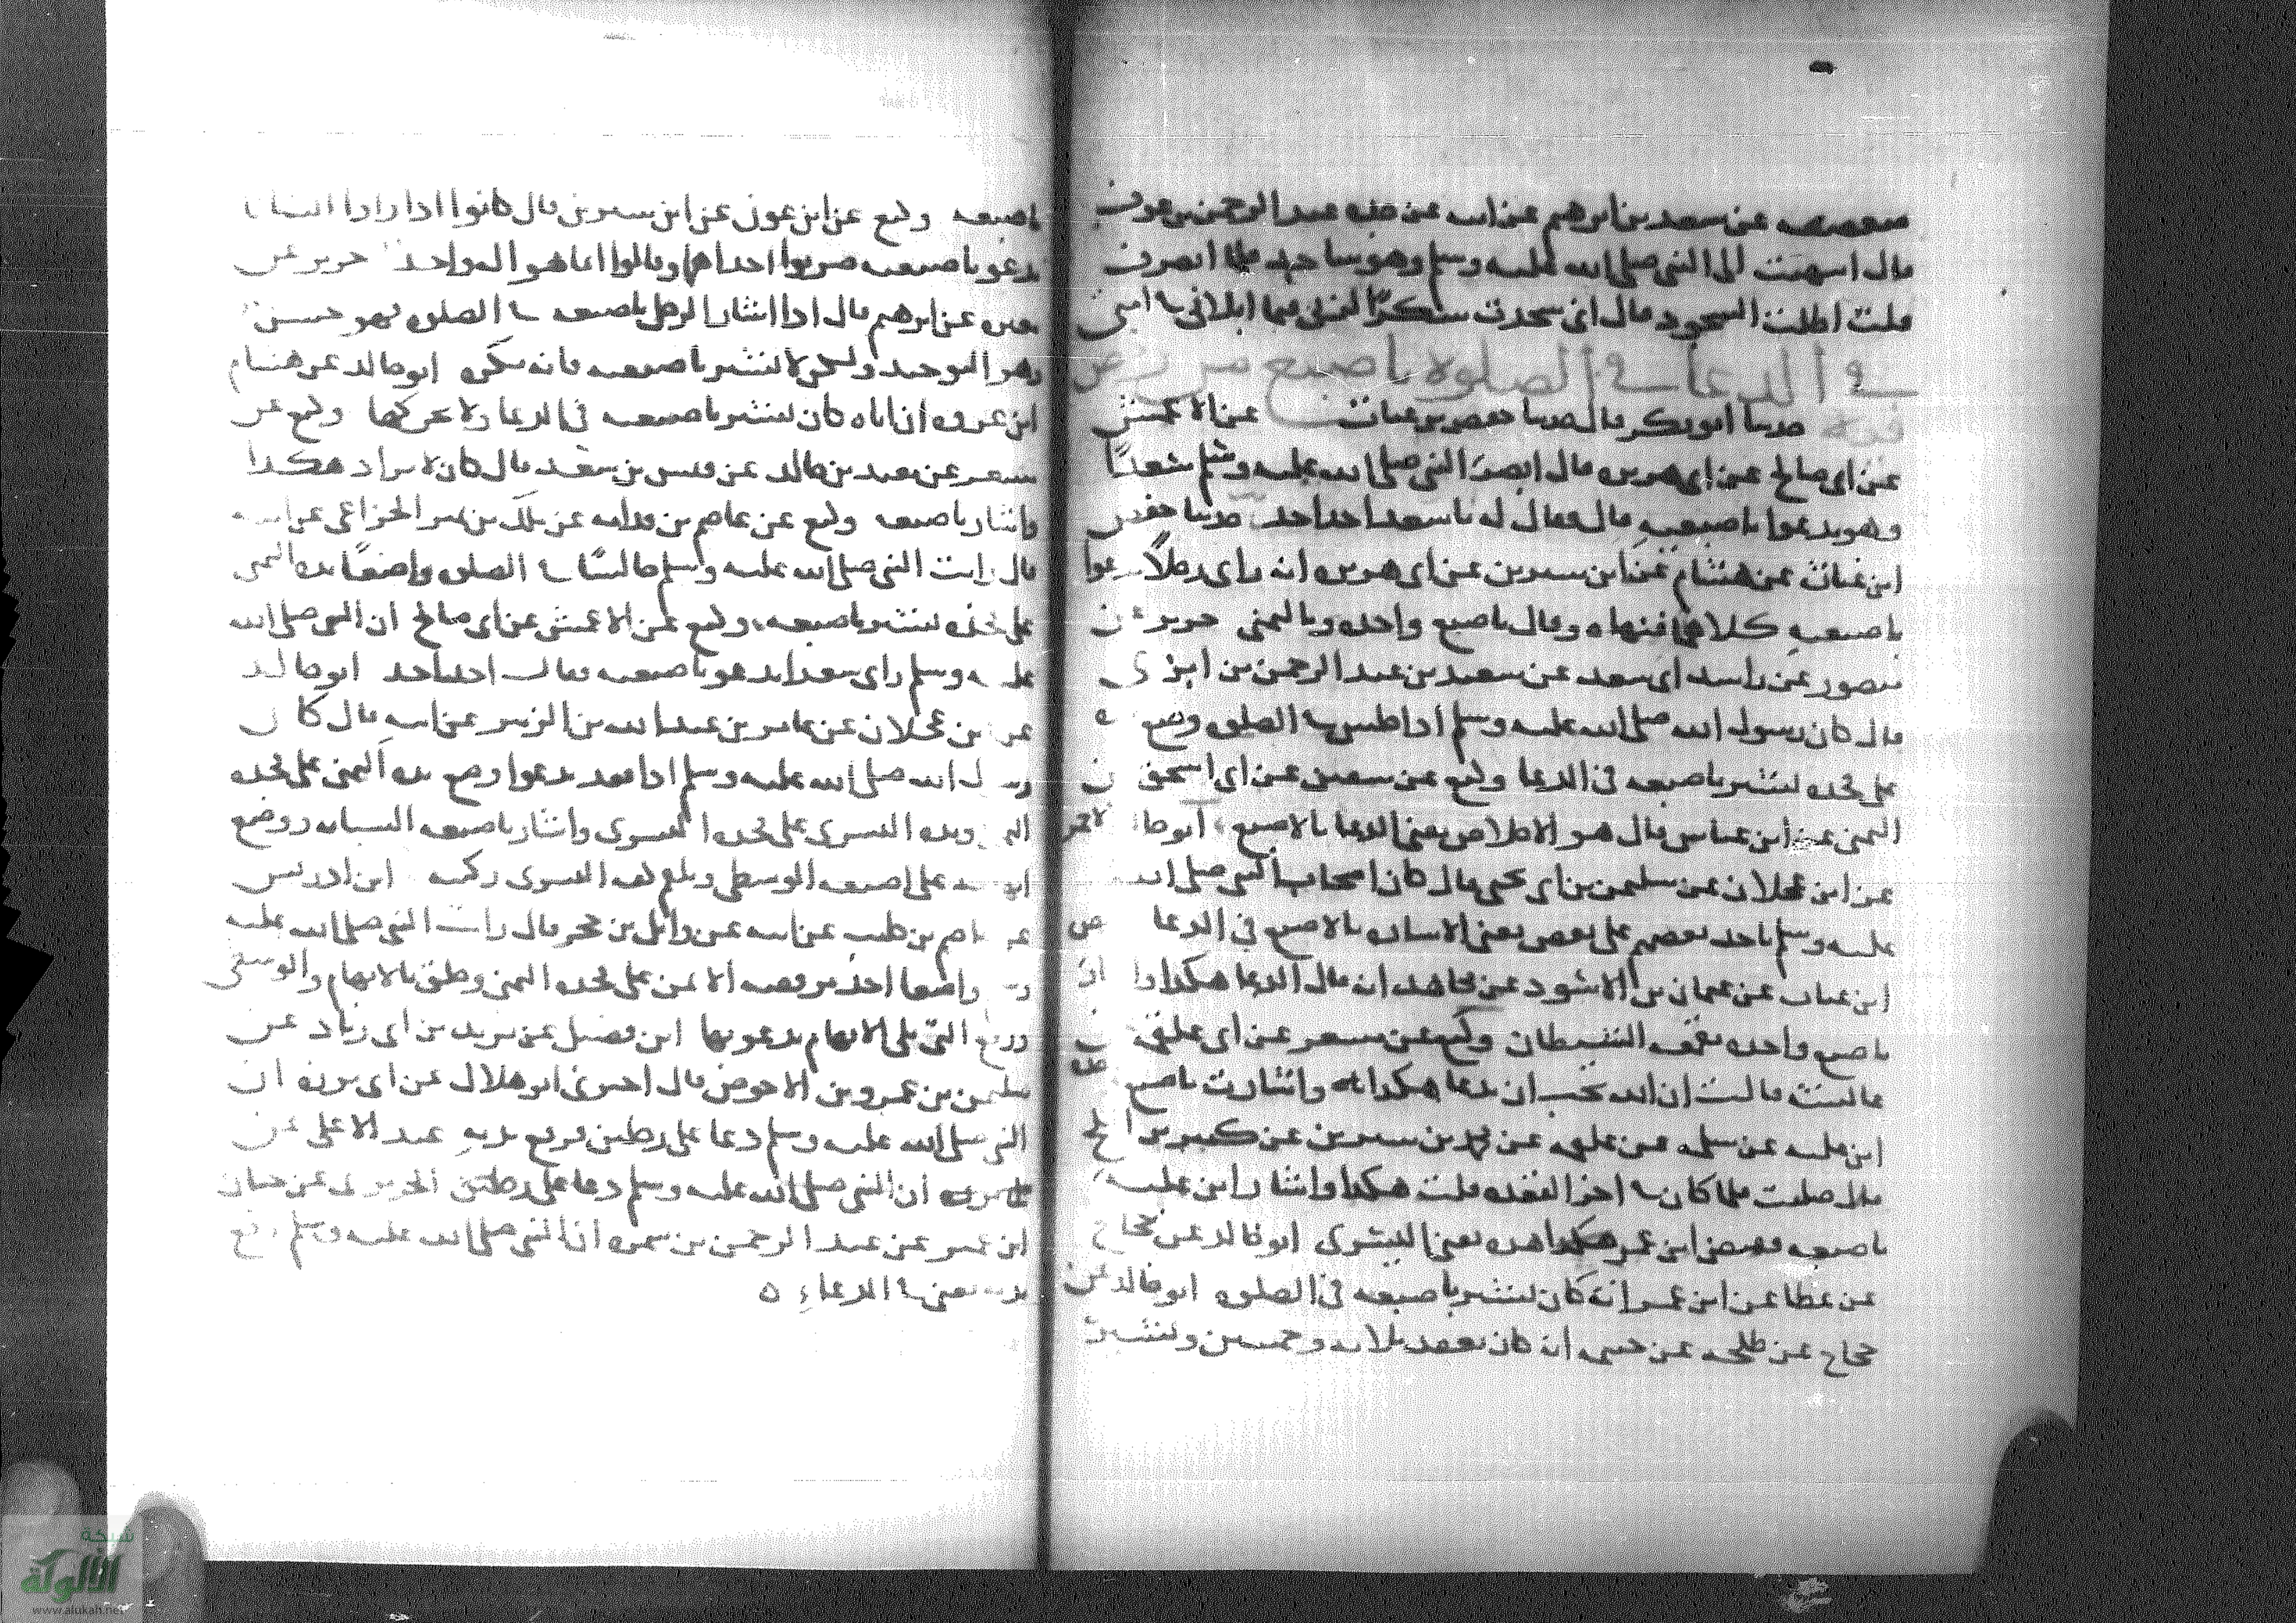 صعصعه عن سعد بن ابرهيم عن ابيه عن جده عبد الرحمن بن عوف
قال انتهيت الى النبي صلى الله عليه وسلم وهو ساجد فلما انصرف
قلت اطلت السجود قال اني سجدت شكرا لله فيما ابلاني في امتي
في الدعا في الصلوة باصبع من رخص
فيه حدثنا ابو بكر قال حدثنا حفص بن غياث عن الاعمش
عن ابي صالح عن ابي هريره قال ابصر النبي صلى الله عليه وسلم سعدا
وهو يدعوا باصبعيه قال فقال له يا سعد احد احد حدثنا حفص
ابن غياث عن هشام عن ابن سيرين عن ابي هريره انه راى رجلا يدعوا
باصبعيه كلاهما فنهاه وقال باصبع واحده وباليمنى جرير عن
منصور عن راشد ابي سعد عن سعيد بن عبد الرحمن بن ابزى
قال كان رسول الله صلى الله عليه وسلم اذا جلس في الصلوه وضع يده
على فخذه يشير باصبعه في الدعا وكيع عن سفين عن ابي اسحق عن
التميمي عن ابن عباس قال هو الاخلاص يعني الدعا بالاصبع ابو خالد الاحمر
عن ابن عجلان عن سليمن بن ابي يحيى قال كان اصحاب النبي صلى الله
عليه وسلم ياخذ بعضهم على بعض يعني الاشاره بالاصبع في الدعا حفص
ابن غياث عن عثمان بن الاسود عن مجاهد انه قال الدعا هكذا واشار
باصبع واحده مقمعه الشيطان وكيع عن مسعر عن ابي علقمه عن
عائشه قالت ان الله يحب ان يدعا هكذا واشارت باصبع
ابن عليه عن سلمه بن علقمه عن محمد بن سيرين عن كثير بن افلح
قال صليت فلما كان في اخر القعده قلت هكذا واشار ابن عليه
باصبعه فقبض ابن عمر هذه يعني اليسرى ابو خالد عن حجاج
عن عطا عن ابن عمر انه كان يشير باصبعه في الصلوه ابو خالد عن
حجاج عن طلحه عن خيثمه انه كان يعقد ثلاثه وخمسين ويشير
باصبعه وكيع عن ابن عون عن ابن سيرين قال كانوا اذا راوا انسانا
يدعو باصبعيه ضربوا احداهما وقالوا انما هو اله واحد جرير عن
مغيره عن ابرهيم قال اذا اشار الرجل باصبعه في الصلوه فهو حسن
وهو التوحيد ولكن لا يشير باصبعيه فانه يكره ابو خالد عن هشام
ابن عروه ان اباه كان يشير باصبعه في الدعا ولا يحركها وكيع عن
مسعر عن معبد بن خالد عن قيس بن سعد قال كان لا يزاد هكذا
واشار باصبعه وكيع عن عصام بن قدامه عن ملك بن نمير الخزاعي عن ابيه
قال رايت النبي صلى الله عليه وسلم جالسا في الصلوه واضعا يده اليمنى
على فخذه يشير باصبعه وكيع عن الاعمش عن ابي صالح ان النبي صلى الله
عليه وسلم راى سعدا يدعو باصبعيه فقال احد احد ابو خالد
عن ابن عجلان عن عامر بن عبد الله بن الزبير عن ابيه قال كان
رسول الله صلى الله عليه وسلم اذا قعد يدعوا وضع يده اليمنى على فخذه
اليمنى ويده اليسرى على فخذه اليسرى واشار باصبعه السبابه ووضع
ابهامه على اصبعه الوسطى ويلقم كفه اليسرى ركبته ابن ادريس
عن عاصم بن كليب عن ابيه عن وايل بن حجر قال رايت النبي صلى الله عليه
وسلم واضعا حد مرفقه الايمن على فخذه اليمنى وحلق بالابهام والوسطى
ورفع التي تلي الابهام يدعو بها ابن فضيل عن يزيد بن ابي زياد عن
سليمن بن عمرو بن الاحوص قال اخبرني ابو هلال عن ابي برزه ان
النبي صلى الله عليه وسلم دعا على رجلين فرفع يديه عبد الاعلى عن
ان النبي صلى الله عليه وسلم دعا على رجلين الجريري عن حيان
ابن عمير عن عبد الرحمن بن سمره ان النبي صلى الله عليه وسلم رفع
يديه يعني في الدعاء